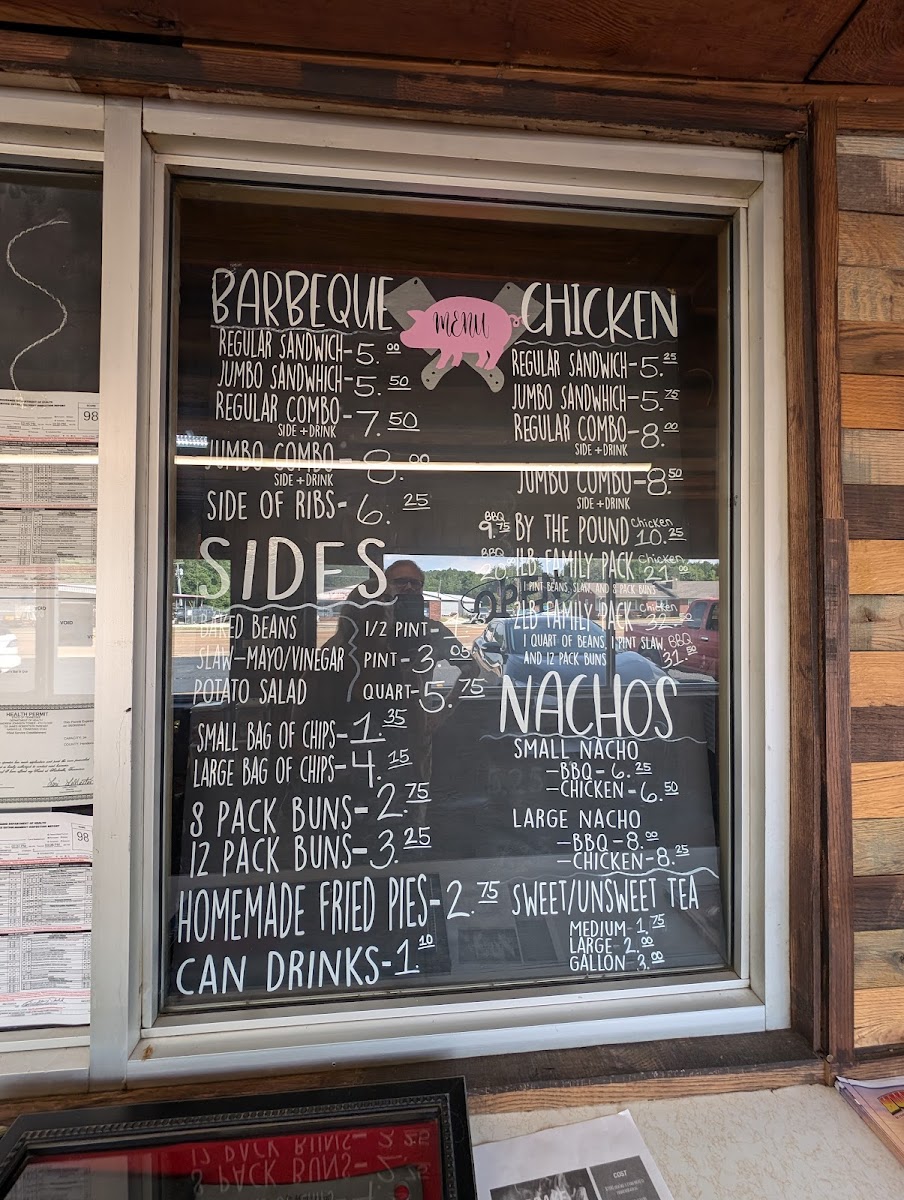 BARBEQUE
REGULAR SANDWICH-5.00
JUMBO SANDWHICH-5.50
REGULAR COMBO-7.50
SIDE + DRINK
JUMBO COMBO-8.00
SIDE + DRINK
SIDE OF RIBS-6.25
MENU
CHICKEN
REGULAR SANDWICH-5.25
JUMBO SANDWHICH-5.75
REGULAR COMBO-8.00
SIDE + DRINK
JUMBO COMBO-8.50
SIDE + DRINK
BBQ 9.75 BY THE POUND Chicken 10.25
BBQ 1LB FAMILY PACK Chicken
1 PINT BEANS, SLAW, AND 8 PACK BUNS
2LB FAMILY PACK Chicken
1 QUART OF BEANS, 1 PINT SLAW, BBQ
AND 12 PACK BUNS 31.50
OPEN
SIDES
BAKED BEANS 1/2 PINT-
SLAW-MAYO/VINEGAR PINT-3.05
POTATO SALAD QUART-5.75
SMALL BAG OF CHIPS-1.35
LARGE BAG OF CHIPS-4.15
8 PACK BUNS-2.75
12 PACK BUNS-3.25
HOMEMADE FRIED PIES-2.75
CAN DRINKS-1.10
NACHOS
SMALL NACHO
-BBQ-6.25
-CHICKEN-6.50
LARGE NACHO
-BBQ-8.00
-CHICKEN-8.25
SWEET/UNSWEET TEA
MEDIUM-1.75
LARGE-2.00
GALLON 3.00
98
VOID
VOID
HEALTH PERMIT
98
COST
12 PACK BUNS-3.25
8 PACK BUNS-2.75